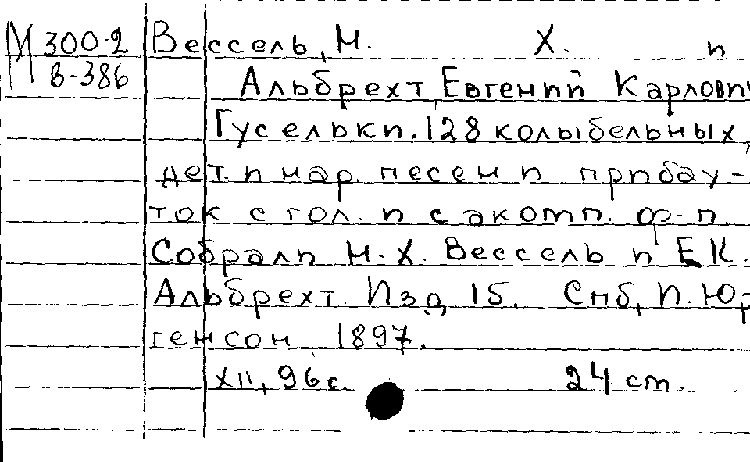 М 300-2 Вессель, Н. Х. и
В-386 Альбрехт, Евгений Карлови
Гусельки. 128 колыбельных,
дет. и нар. песен и прибау-
ток с гол. и с акомп. ф-п.
Собрали Н. Х. Вессель и Е К.
Альбрехт. Изд. 15. Спб, П. Юр
генсон 1897.
XII, 96 с. 24 cm.